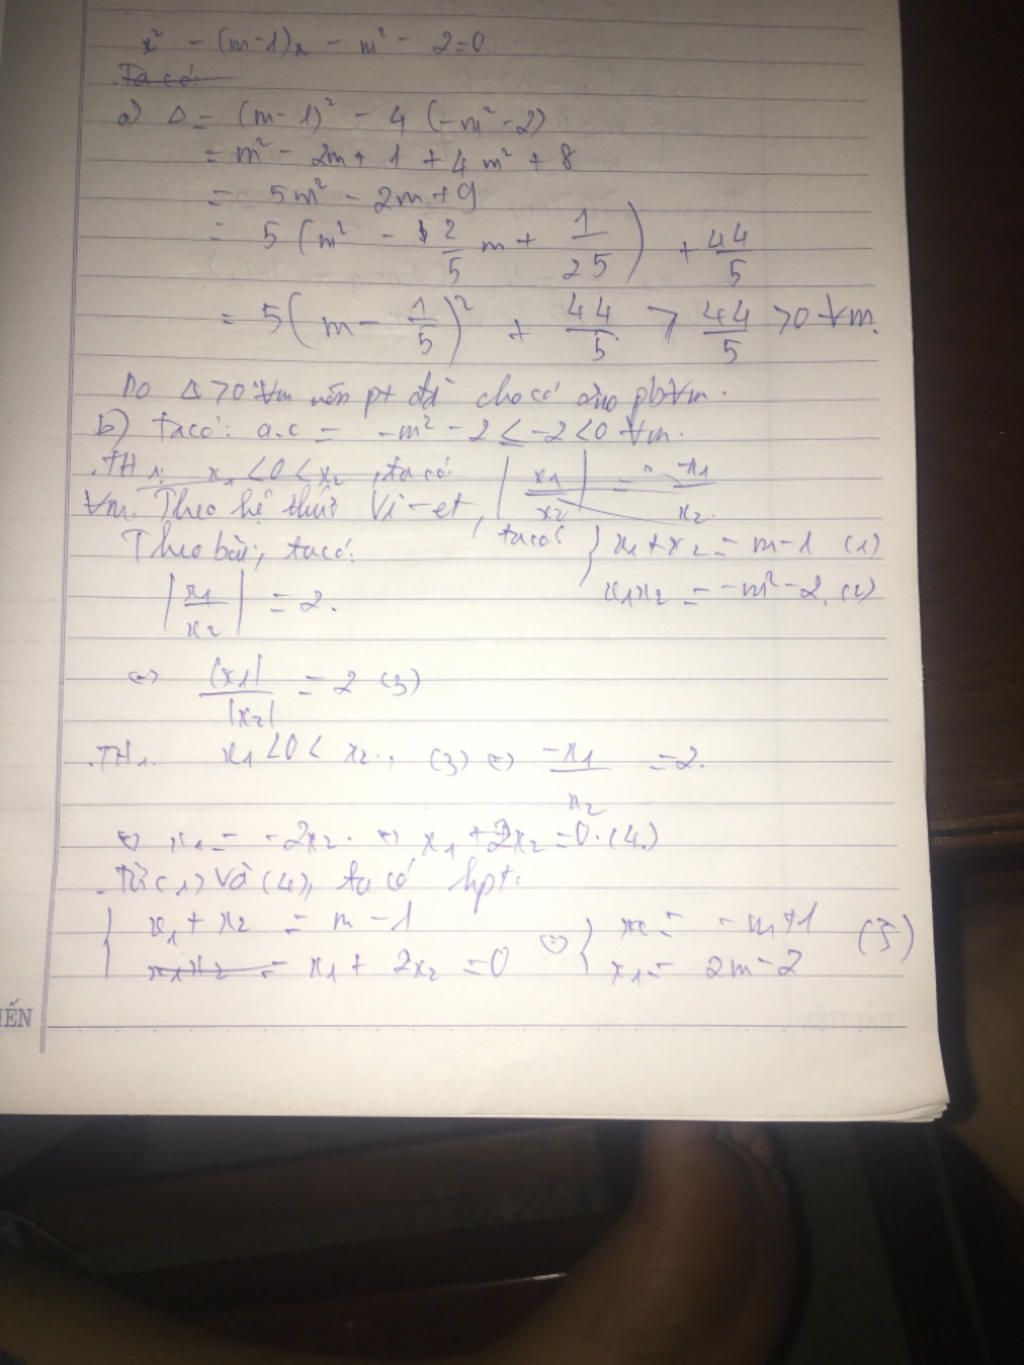 x² - (m-1)x - m² - 2=0
Ta có:
a) Δ = (m-1)² - 4 (-m² - 2)
= m² - 2m + 1 + 4m² + 8
= 5m² - 2m + 9
= 5 (m² - 2/5 m + 1/25) + 44/5
= 5(m - 1/5)² + 44/5 ≥ 44/5 > 0 ∀m.
Do Δ > 0 ∀m nên pt đã cho có pb ∀m.
b) Ta có: a.c = -m² - 2 ≤ -2 < 0 ∀m.
TH1: x₁ < 0 < x₂, ta có |x₁/x₂| = -x₁/x₂.
∀m. Theo hệ thức Vi-et, ta có
Theo bài, ta có: { x₁ + x₂ = m - 1 (1)
|x₁/x₂| = 2. x₁x₂ = -m² - 2. (2)
⇔ |x₁|/|x₂| = 2 (3)
.TH1. x₁ < 0 < x₂., (3) ⇔ -x₁/x₂ = 2.
⇔ x₁ = -2x₂. ⇔ x₁ + 2x₂ = 0. (4.)
. Từ (1) và (4), ta có hpt:
{ x₁ + x₂ = m - 1 ⇔ { x₂ = -m + 1 (5)
x₁x₂ = x₁ + 2x₂ = 0 x₁ = 2m - 2
IẾN